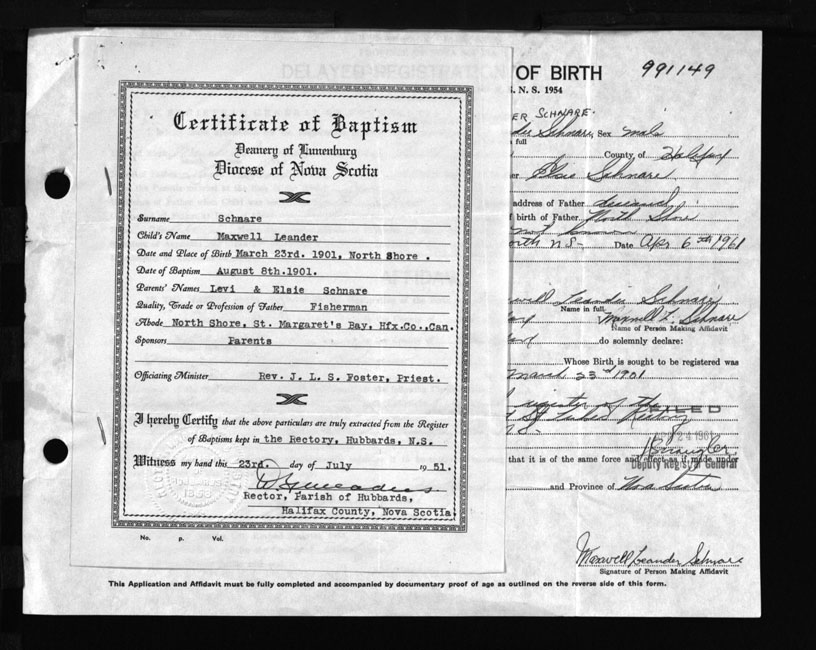 OF BIRTH 991149
N. S. 1954
Certificate of Baptism
Deanery of Lunenburg
Diocese of Nova Scotia
Surname Schnare
Child's Name Maxwell Leander
Date and Place of Birth March 23rd. 1901, North Shore .
Date of Baptism August 8th.1901.
Parents' Names Levi & Elsie Schnare
Quality, Trade or Profession of Father Fisherman
Abode North Shore, St. Margaret's Bay, Hfx.Co.,Can.
Sponsors Parents
Officiating Minister Rev. J. L. S. Foster, Priest.
I hereby Certify that the above particulars are truly extracted from the Register
of Baptisms kept in the Rectory, Hubbards, N.S.
Witness my hand this 23rd. day of July 1951.
Rector, Parish of Hubbards,
Halifax County, Nova Scotia.
No. P. Vol.
ER SCHNARE.
Schnare, Sex male
full
County of Halifax
Schnare
address of Father deceased
of birth of Father North Shore
N.S. Date Apr 6th 1961
Leander Schnare
Name in full
Maxwell L. Schnare
Name of Person Making Affidavit
do solemnly declare:
Whose Birth is sought to be registered was
March 23rd 1901
register of the
FILED
24 1961
that it is of the same force and effect as if made under
Deputy Registrar General
and Province of Nova Scotia
Maxwell Leander Schnare
Signature of Person Making Affidavit
This Application and Affidavit must be fully completed and accompanied by documentary proof of age as outlined on the reverse side of this form.